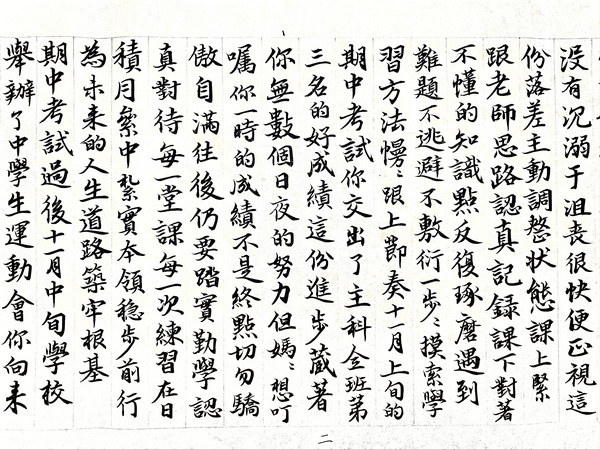 没有沉溺于沮丧很快便正視這
份落差主動調整状態課上緊
跟老師思路認真記録課下對著
不懂的知識點反復琢磨遇到
難題不逃避不敷衍一步〻摸索學
習方法慢〻跟上節奏十一月上旬的
期中考試你交出了主科全班第
三名的好成績這份進步藏著
你無數個日夜的努力但媽〻想叮
嘱你一時的成績不是終點切勿驕
傲自滿往後仍要踏實勤學認
真對待每一堂課每一次練習在日
積月纍中紮實本領稳步前行
為未来的人生道路築牢根基
期中考試過後十一月中旬學校
舉辦了中學生運動會你向来
二